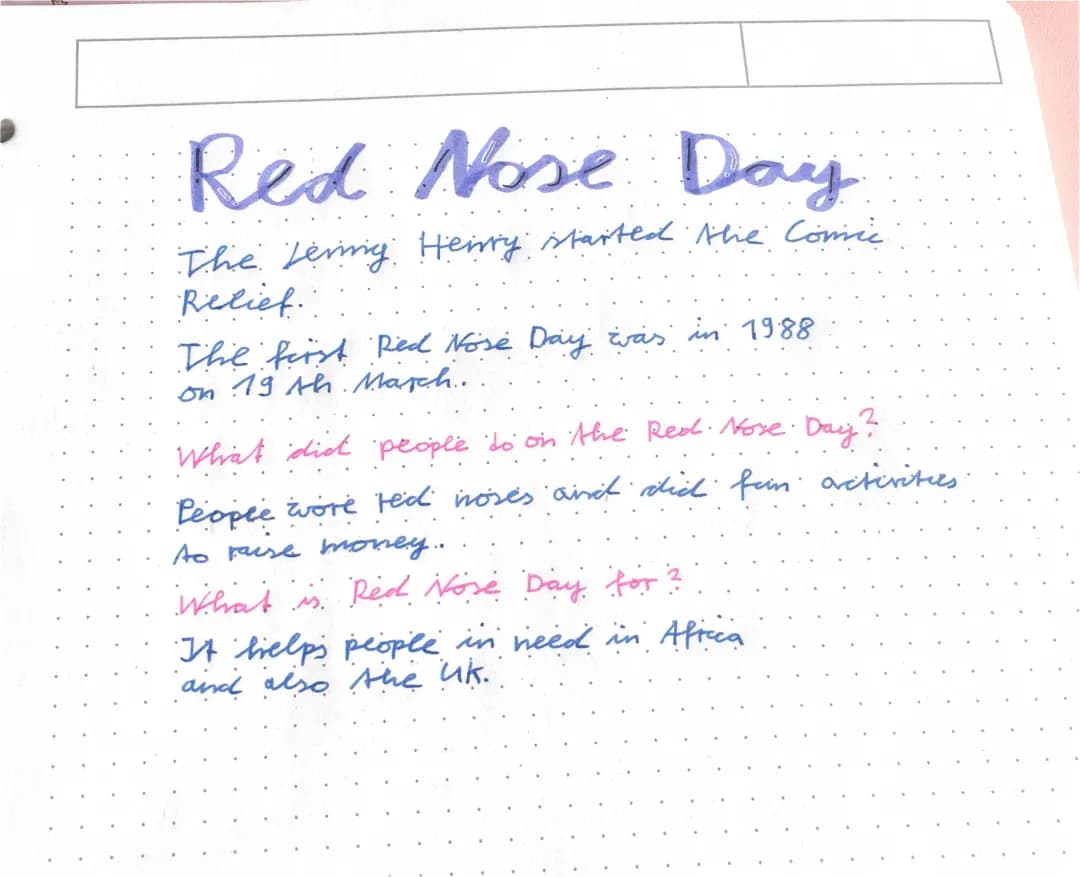 Red Nose Day
The Lenny Henry started the Comic
Relief.
The first Red Nose Day was in 1988
on 19 th March.
What did people do on the Red Nose Day?
People wore red noses and did fun activities
to raise money.
What is Red Nose Day for?
It helps people in need in Africa
and also the UK.